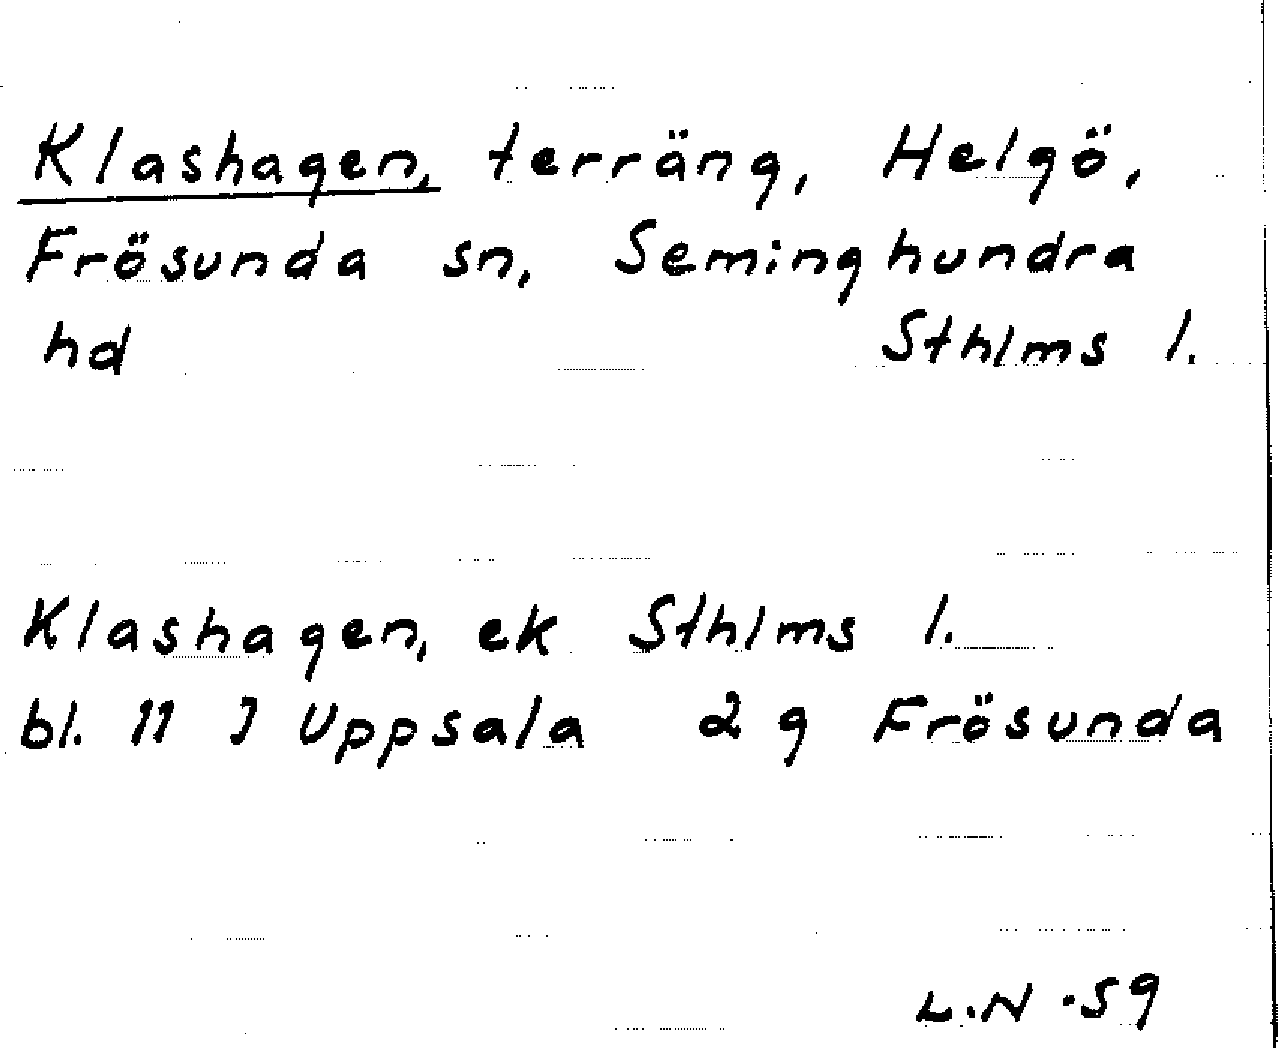 Klashagen, terräng, Helgö,
Frösunda sn, Seminghundra
hd Sthlms l.
Klashagen, ek Sthlms l.
bl. 11 J Uppsala 2 g Frösunda
L.N -59